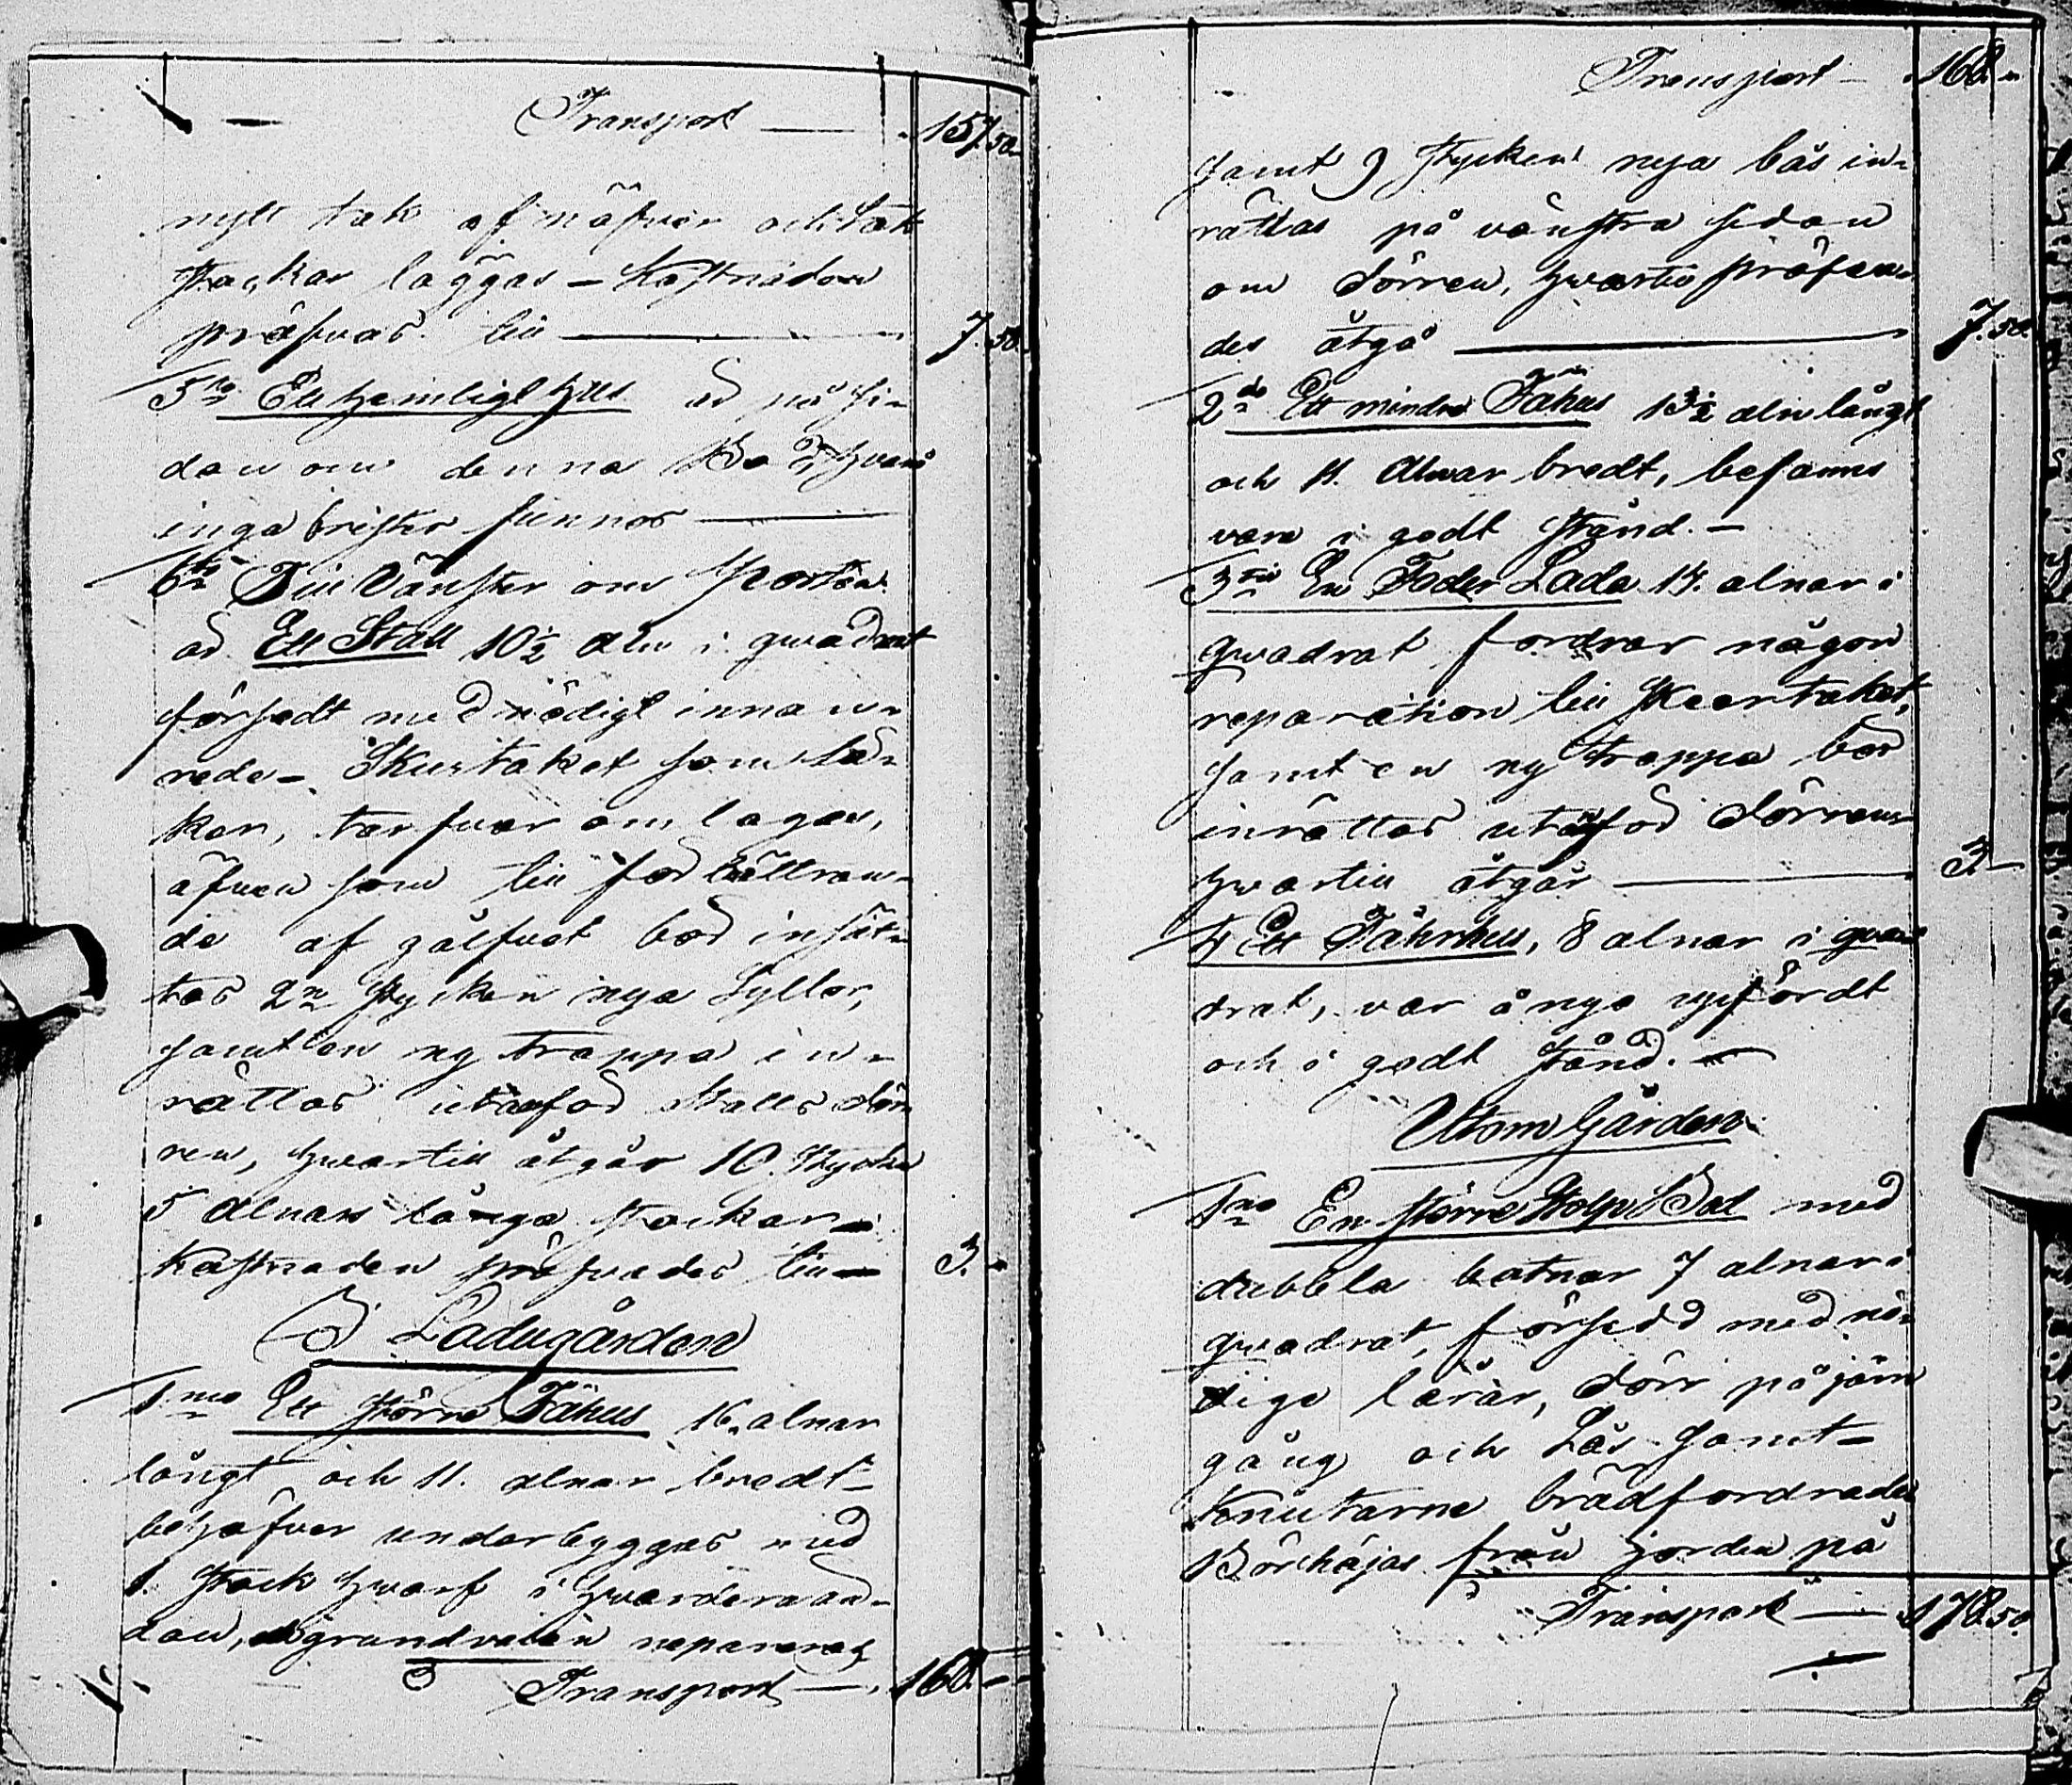 Transport — 157.50.
nytt tak af näfver och tak
stockar läggas – Kostnaden
pröfvas till — 7.50.
5to Ett Hemligt Hus vid på si-
dan om denna Bod, hvars
inga brister funnos —
6to Till Vänster om Porten
är Ett Stall 10½ aln i qwadrat
försedt med nödigt innan-
rede – Skurtaket som läc-
ker, tarfvar omlagas,
äfven som till förbättran-
de af gålfvet bör insät-
tas 2n stycken nya Syllor,
samt en ny trappa in-
rättas utanför Stalls dör-
ren, hvartill åtgår 10. stycken
5 alnars långa stockar –
Kostnaden pröfvades till — 3. –
I Ladugården
1mo Ett större Fähus 16. alnar
långt och 11. alnar bredt –
behöfver underbyggas med
1. stock hvarf i hvardera än-
dan, grundvalen repareras,
Transport — 168. –
Transport — 168. –
samt 9 stycken nya bås in-
rättas på vänstra sidan
om dörren, hvartill pröfva-
des åtgå — 7.50.
2do Ett mindre Fähus 13½ aln långt
och 11. Alnar bredt, befanns
vara i godt stånd. –
3tio En Foder Lada 14. alnar i
qwadrat fordrar någon
reparation till skeertaket,
samt en ny trappa bör
inrättas utanför dörren
hvartill åtgår — 3. –
4 Ett Fåhrhus, 8 alnar i qwa-
drat, var å nyo uppfördt
och i godt stånd. –
Utom Gården
1mo En större Stolp Bod med
dubbla botnar 7 alnar i
qwadrat, försedd med nö-
dige lårar, dörr på järn
gång och Lås samt –
Knutarne brädfordrade
Bör höjas från jorden på
Transport — 178.50.